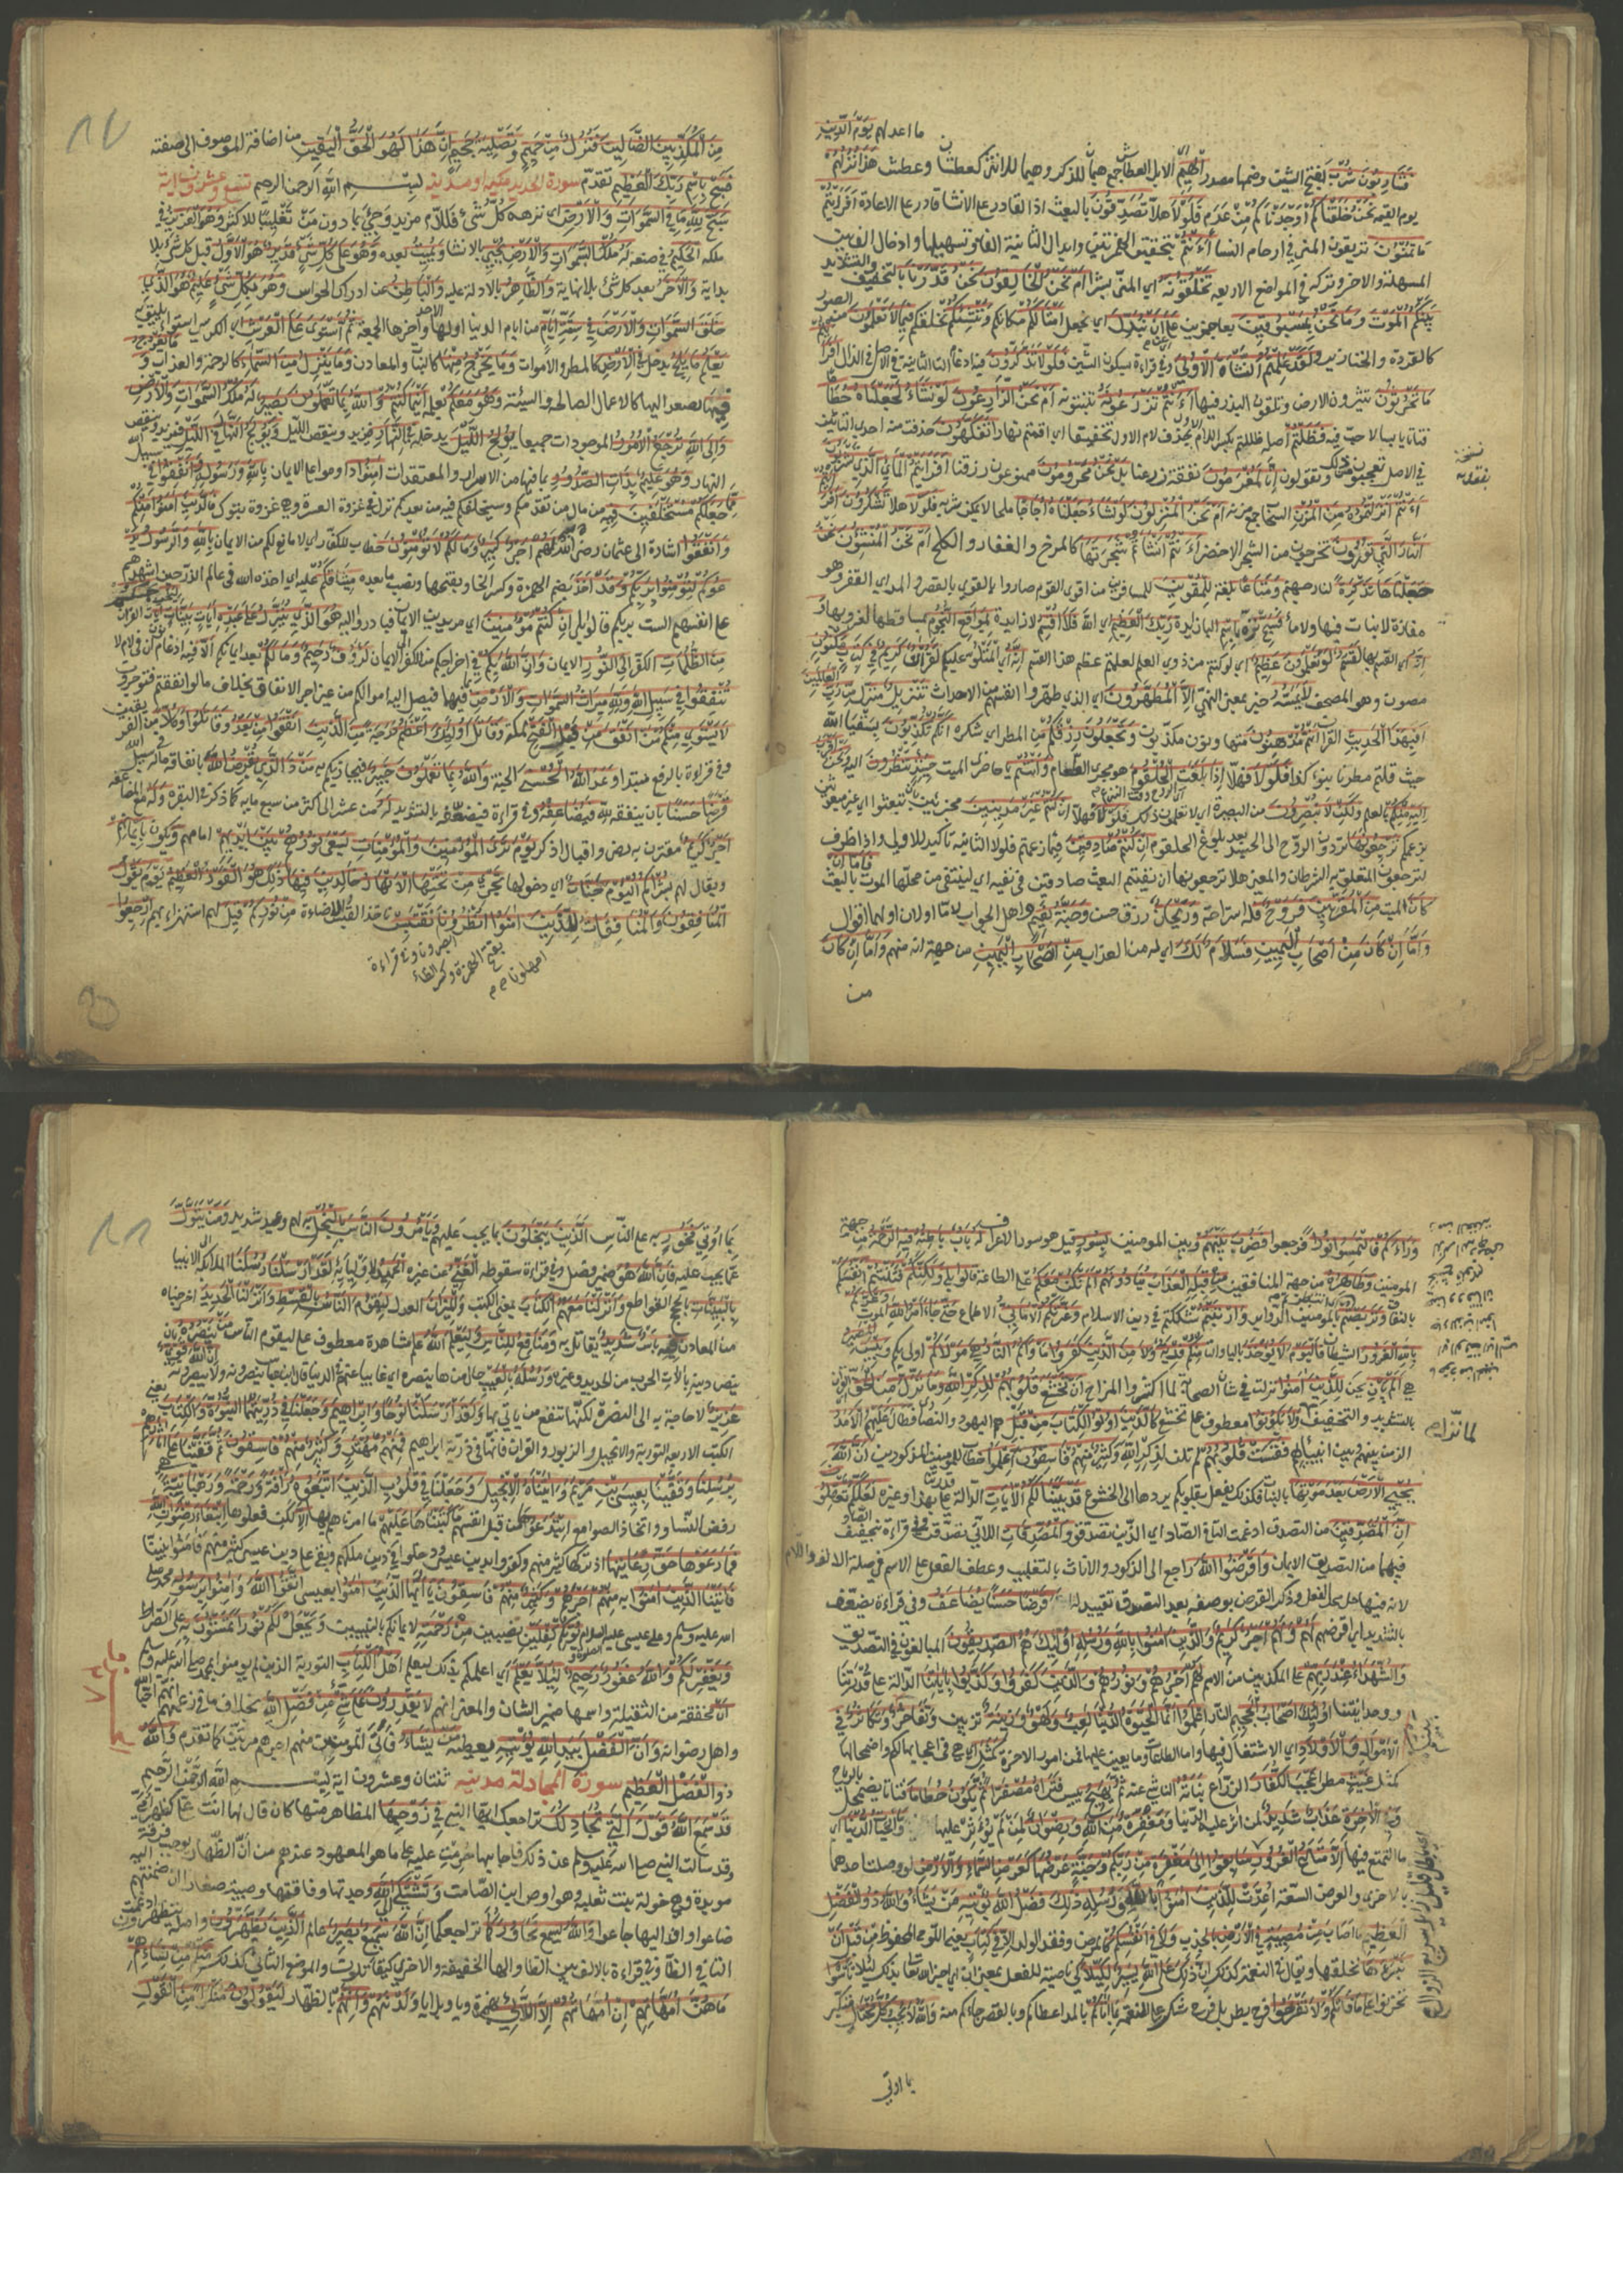 فَشَارِبُونَ شُرْبَ بفتح الشين وضمها مصدر الْهِيمِ الابل العطاش جمع هيمان للذكر وهيما للانثى كعطشان وعطشى هَذَا نُزُلُهُمْ
ما اعد لهم يَوْمَ الدِّينِ
يوم القيمة نَحْنُ خَلَقْنَاكُمْ اوجدناكم من عدم فَلَوْلَا هلا تُصَدِّقُونَ بالبعث اذ القادر على الانشا قادر على الاعادة أَفَرَأَيْتُمْ
مَا تُمْنُونَ تريقون المني في ارحام النسا أَأَنْتُمْ بتحقيق الهمزتين وابدال الثانية الفا وتسهيلها وادخال الف بين
المسهلة والاخرى وتركه في المواضع الاربعة تَخْلُقُونَهُ اي المني بشرا أَمْ نَحْنُ الْخَالِقُونَ نَحْنُ قَدَّرْنَا بالتخفيف والتشديد
بَيْنَكُمُ الْمَوْتَ وَمَا نَحْنُ بِمَسْبُوقِينَ بعاجزين عَلَى أَنْ نُبَدِّلَ اي نجعل أَمْثَالَكُمْ مكانكم وَنُنْشِئَكُمْ نخلقكم فِي مَا لَا تَعْلَمُونَ من الصور
كالقردة والخنازير وَلَقَدْ عَلِمْتُمُ النَّشْأَةَ الْأُولَى وفي قراءة بسكون الشين فَلَوْلَا تَذَكَّرُونَ فيه ادغام التا الثانية في الاصل في الذال أَفَرَأَيْتُمْ
مَا تَحْرُثُونَ تثيرون الارض وتلقون البذر فيها أَأَنْتُمْ تَزْرَعُونَهُ تنبتونه أَمْ نَحْنُ الزَّارِعُونَ لَوْ نَشَاءُ لَجَعَلْنَاهُ حُطَامًا
نباتا يابسا لا حب فيه فَظَلْتُمْ اصله ظللتم بكسر اللام حذف لام الاول تخفيفا اي اقمتم نهارا تَفَكَّهُونَ حذفت منه احدى التائين
في الاصل تعجبون من ذلك وتقولون إِنَّا لَمُغْرَمُونَ نفقة زرعنا بَلْ نَحْنُ مَحْرُومُونَ ممنوعون رزقنا أَفَرَأَيْتُمُ الْمَاءَ الَّذِي تَشْرَبُونَ
أَأَنْتُمْ أَنْزَلْتُمُوهُ مِنَ الْمُزْنِ السحاب جمع مزنة أَمْ نَحْنُ الْمُنْزِلُونَ لَوْ نَشَاءُ جَعَلْنَاهُ أُجَاجًا ملحا لا يمكن شربه فَلَوْلَا هلا تَشْكُرُونَ أَفَرَأَيْتُمُ
النَّارَ الَّتِي تُورُونَ تخرجون من الشجر الاخضر أَأَنْتُمْ أَنْشَأْتُمْ شَجَرَتَهَا كالمرخ والعفار والكلخ أَمْ نَحْنُ الْمُنْشِئُونَ نَحْنُ
جَعَلْنَاهَا تَذْكِرَةً لنار جهنم وَمَتَاعًا بلغة لِلْمُقْوِينَ للمسافرين من اقوى القوم صاروا بالقوى بالقصر والمد اي القفر وهو
مفازة لا نبات فيها ولا ما فَسَبِّحْ نزه بِاسْمِ البا زايدة رَبِّكَ الْعَظِيمِ اي الله فَلَا أُقْسِمُ لا زايدة بِمَوَاقِعِ النُّجُومِ بمساقطها لغروبها
وَإِنَّهُ اي القسم بها لَقَسَمٌ لَوْ تَعْلَمُونَ عَظِيمٌ اي لو كنتم من ذوي العلم لعلمتم عظم هذا القسم إِنَّهُ اي المتلو عليكم لَقُرْآنٌ كَرِيمٌ فِي كِتَابٍ مَكْنُونٍ
مصون وهو المصحف لَا يَمَسُّهُ خبر بمعنى النهي إِلَّا الْمُطَهَّرُونَ اي الذي طهروا انفسهم من الاحداث تَنْزِيلٌ منزل مِنْ رَبِّ الْعَالَمِينَ
أَفَبِهَذَا الْحَدِيثِ القران أَنْتُمْ مُدْهِنُونَ متهاونون مكذبون وَتَجْعَلُونَ رِزْقَكُمْ من المطر اي شكره أَنَّكُمْ تُكَذِّبُونَ بسقيا الله
حيث قلتم مطرنا بنوء كذا فَلَوْلَا فهلا إِذَا بَلَغَتِ الروح وقت النزع الْحُلْقُومَ هو مجرى الطعام وَأَنْتُمْ يا حاضري الميت حِينَئِذٍ تَنْظُرُونَ اليه وَنَحْنُ أَقْرَبُ
إِلَيْهِ مِنْكُمْ بالعلم وَلَكِنْ لَا تُبْصِرُونَ من البصيرة اي لا تعلمون ذلك فَلَوْلَا فهلا إِنْ كُنْتُمْ غَيْرَ مَدِينِينَ مجزيين بان تبعثوا اي غير مبعوثين
بزعمكم تَرْجِعُونَهَا تردون الروح الى الجسد بعد بلوغ الحلقوم إِنْ كُنْتُمْ صَادِقِينَ فيما زعمتم فلولا الثانية تاكيد للاولى واذا ظرف
لترجعون المتعلق به الشرطان والمعنى هلا ترجعونها ان نفيتم البعث صادقين في نفيه اي لينتفي عن محلها الموت كالبعث فَأَمَّا إِنْ
كَانَ الميت مِنَ الْمُقَرَّبِينَ فَرَوْحٌ فله استراحة وَرَيْحَانٌ رزق حسن وَجَنَّةُ نَعِيمٍ وهل الجواب لاما او لان او لهما اقوال
وَأَمَّا إِنْ كَانَ مِنْ أَصْحَابِ الْيَمِينِ فَسَلَامٌ لَكَ اي له من العذاب مِنْ أَصْحَابِ الْيَمِينِ من جهة انه منهم وَأَمَّا إِنْ كَانَ
من
نسخة
نفقة
مِنَ الْمُكَذِّبِينَ الضَّالِّينَ فَنُزُلٌ مِنْ حَمِيمٍ وَتَصْلِيَةُ جَحِيمٍ إِنَّ هَذَا لَهُوَ حَقُّ الْيَقِينِ من اضافة الموصوف الى صفته
فَسَبِّحْ بِاسْمِ رَبِّكَ الْعَظِيمِ تقدم سورة الحديد مكية او مدنية تسع وعشرون اية بسم الله الرحمن الرحيم
سَبَّحَ لِلَّهِ مَا فِي السَّمَوَاتِ وَالْأَرْضِ اي نزهه كل شئ فاللام مزيدة وجئ بما دون من تغليبا للاكثر وَهُوَ الْعَزِيزُ في
ملكه الْحَكِيمُ في صنعه لَهُ مُلْكُ السَّمَوَاتِ وَالْأَرْضِ يُحْيِي بالانشا وَيُمِيتُ بعده وَهُوَ عَلَى كُلِّ شَيْءٍ قَدِيرٌ هُوَ الْأَوَّلُ قبل كل شئ بلا
بداية وَالْآخِرُ بعد كل شئ بلا نهاية وَالظَّاهِرُ بالادلة عليه وَالْبَاطِنُ عن ادراك الحواس وَهُوَ بِكُلِّ شَيْءٍ عَلِيمٌ هُوَ الَّذِي
خَلَقَ السَّمَوَاتِ وَالْأَرْضَ فِي سِتَّةِ أَيَّامٍ من ايام الدنيا اولها الاحد واخرها الجمعة ثُمَّ اسْتَوَى عَلَى الْعَرْشِ اي الكرسي استواء يليق به
يَعْلَمُ مَا يَلِجُ يدخل فِي الْأَرْضِ كالمطر والاموات وَمَا يَخْرُجُ مِنْهَا كالنبات والمعادن وَمَا يَنْزِلُ مِنَ السَّمَاءِ كالرحمة والعذاب وَمَا يَعْرُجُ
فِيهَا يصعد اليها كالاعمال الصالحة والسيئة وَهُوَ مَعَكُمْ بعلمه أَيْنَمَا كُنْتُمْ وَاللَّهُ بِمَا تَعْمَلُونَ بَصِيرٌ لَهُ مُلْكُ السَّمَوَاتِ وَالْأَرْضِ
وَإِلَى اللَّهِ تُرْجَعُ الْأُمُورُ الموجودات جميعا يُولِجُ اللَّيْلَ يدخله فِي النَّهَارِ فيزيد وينقص الليل وَيُولِجُ النَّهَارَ فِي اللَّيْلِ فيزيد وينقص
النهار وَهُوَ عَلِيمٌ بِذَاتِ الصُّدُورِ بما فيها من الاسرار والمعتقدات آمِنُوا داوموا على الايمان بِاللَّهِ وَرَسُولِهِ وَأَنْفِقُوا في سبيل الله
مِمَّا جَعَلَكُمْ مُسْتَخْلَفِينَ فِيهِ من مال من تقدمكم وسيخلفكم فيه من بعدكم نزل في غزوة العسرة وهي غزوة تبوك فَالَّذِينَ آمَنُوا مِنْكُمْ
وَأَنْفَقُوا اشارة الى عثمان رضي الله عنه لَهُمْ أَجْرٌ كَبِيرٌ وَمَا لَكُمْ لَا تُؤْمِنُونَ خطاب للكفار اي لا مانع لكم من الايمان بِاللَّهِ وَالرَّسُولُ يَدْ
عُوكُمْ لِتُؤْمِنُوا بِرَبِّكُمْ وَقَدْ أُخِذَ بضم الهمزة وكسر الخا وبفتحها ونصب ما بعده مِيثَاقُكُمْ عليه اي اخذه الله في عالم الذر حين اشهدهم
على انفسهم الست بربكم قالوا بلى إِنْ كُنْتُمْ مُؤْمِنِينَ اي مريدين الايمان فبادروا اليه هُوَ الَّذِي يُنَزِّلُ عَلَى عَبْدِهِ آيَاتٍ بَيِّنَاتٍ ايات القران
مِنَ الظُّلُمَاتِ الكفر إِلَى النُّورِ الايمان وَإِنَّ اللَّهَ بِكُمْ في اخراجكم من الكفر الى الايمان لَرَءُوفٌ رَحِيمٌ وَمَا لَكُمْ بعد ايمانكم أَلَّا فيه ادغام ان في لام لا
تُنْفِقُوا فِي سَبِيلِ اللَّهِ وَلِلَّهِ مِيرَاثُ السَّمَوَاتِ وَالْأَرْضِ بما فيها فيصل اليه اموالكم من غير اجر الانفاق بخلاف ما لو انفقتم فتوجرون
لَا يَسْتَوِي مِنْكُمْ مَنْ أَنْفَقَ مِنْ قَبْلِ الْفَتْحِ لمكة وَقَاتَلَ أُولَئِكَ أَعْظَمُ دَرَجَةً مِنَ الَّذِينَ أَنْفَقُوا مِنْ بَعْدُ وَقَاتَلُوا وَكُلًّا من الفريقين
وفي قراءة بالرفع مبتدا وَعَدَ اللَّهُ الْحُسْنَى الجنة وَاللَّهُ بِمَا تَعْمَلُونَ خَبِيرٌ فيجازيكم به مَنْ ذَا الَّذِي يُقْرِضُ اللَّهَ بانفاق ماله في سبيل الله
قَرْضًا حَسَنًا بان ينفقه لله فَيُضَاعِفَهُ وفي قراءة فيضعفه بالتشديد لَهُ من عشر الى اكثر من سبع ماية كما ذكر في البقرة وَلَهُ مع المضاعفة
أَجْرٌ كَرِيمٌ مقترن به رضى واقبال اذكر يَوْمَ تَرَى الْمُؤْمِنِينَ وَالْمُؤْمِنَاتِ يَسْعَى نُورُهُمْ بَيْنَ أَيْدِيهِمْ امامهم ويكون بِأَيْمَانِهِمْ
ويقال لهم بُشْرَاكُمُ الْيَوْمَ جَنَّاتٌ اي دخولها تَجْرِي مِنْ تَحْتِهَا الْأَنْهَارُ خَالِدِينَ فِيهَا ذَلِكَ هُوَ الْفَوْزُ الْعَظِيمُ يَوْمَ يَقُولُ
الْمُنَافِقُونَ وَالْمُنَافِقَاتُ لِلَّذِينَ آمَنُوا انْظُرُونَا نَقْتَبِسْ ناخذ القبس والاضاءة مِنْ نُورِكُمْ قِيلَ لهم استهزاء بهم ارْجِعُوا
ابصرونا وفي قراءة
بفتح الهمزة وكسر الظاء
امهلونا صح
وَرَاءَكُمْ فَالْتَمِسُوا نُورًا فرجعوا فَضُرِبَ بَيْنَهُمْ وبين المومنين بِسُورٍ قيل هو سور الاعراف لَهُ بَابٌ بَاطِنُهُ فِيهِ الرَّحْمَةُ من جهة
المومنين وَظَاهِرُهُ من جهة المنافقين مِنْ قِبَلِهِ الْعَذَابُ يُنَادُونَهُمْ أَلَمْ نَكُنْ مَعَكُمْ على الطاعة قَالُوا بَلَى وَلَكِنَّكُمْ فَتَنْتُمْ أَنْفُسَكُمْ
بالنفاق وَتَرَبَّصْتُمْ بالمومنين الدواير وَارْتَبْتُمْ شككتم في دين الاسلام وَغَرَّتْكُمُ الْأَمَانِيُّ الاطماع حَتَّى جَاءَ أَمْرُ اللَّهِ الموت وَغَرَّكُمْ
بِاللَّهِ الْغَرُورُ الشيطان فَالْيَوْمَ لَا يُؤْخَذُ باليا والتا مِنْكُمْ فِدْيَةٌ وَلَا مِنَ الَّذِينَ كَفَرُوا مَأْوَاكُمُ النَّارُ هِيَ مَوْلَاكُمْ اولى بكم وَبِئْسَ الْمَصِيرُ
هي أَلَمْ يَأْنِ يحن لِلَّذِينَ آمَنُوا نزلت في شان الصحابة لما اكثروا المزاح أَنْ تَخْشَعَ قُلُوبُهُمْ لِذِكْرِ اللَّهِ وَمَا نَزَلَ مِنَ الْحَقِّ القران
بالتشديد والتخفيف وَلَا يَكُونُوا معطوف على تخشع كَالَّذِينَ أُوتُوا الْكِتَابَ مِنْ قَبْلُ هم اليهود والنصارى فَطَالَ عَلَيْهِمُ الْأَمَدُ
الزمن بينهم وبين انبيائهم فَقَسَتْ قُلُوبُهُمْ لم تلن لذكر الله وَكَثِيرٌ مِنْهُمْ فَاسِقُونَ اعْلَمُوا خطاب للمومنين المذكورين أَنَّ اللَّهَ
يُحْيِي الْأَرْضَ بَعْدَ مَوْتِهَا بالنبات فكذلك يفعل بقلوبكم يردها الى الخشوع قَدْ بَيَّنَّا لَكُمُ الْآيَاتِ الدالة على قدرتنا بهذا وغيره لَعَلَّكُمْ تَعْقِلُونَ
إِنَّ الْمُصَّدِّقِينَ من التصدق ادغمت التا في الصاد اي الذين تصدقوا وَالْمُصَّدِّقَاتِ اللاتي تصدقن وفي قراءة بتخفيف الصاد
فيهما من التصديق الايمان وَأَقْرَضُوا اللَّهَ راجع الى الذكور والاناث بالتغليب وعطف الفعل على الاسم في صلة الالف واللام
لانه فيها حل محل الفعل وذكر القرض بوصفه بعد التصدق تقييد له قَرْضًا حَسَنًا يُضَاعَفُ وفي قراءة يضعف
بالتشديد اي قرضهم لَهُمْ وَلَهُمْ أَجْرٌ كَرِيمٌ وَالَّذِينَ آمَنُوا بِاللَّهِ وَرُسُلِهِ أُولَئِكَ هُمُ الصِّدِّيقُونَ المبالغون في التصديق
وَالشُّهَدَاءُ عِنْدَ رَبِّهِمْ على المكذبين من الامم لَهُمْ أَجْرُهُمْ وَنُورُهُمْ وَالَّذِينَ كَفَرُوا وَكَذَّبُوا بِآيَاتِنَا الدالة على قدرتنا
ووحدانيتنا أُولَئِكَ أَصْحَابُ الْجَحِيمِ النار اعْلَمُوا أَنَّمَا الْحَيَاةُ الدُّنْيَا لَعِبٌ وَلَهْوٌ وَزِينَةٌ تزيين وَتَفَاخُرٌ بَيْنَكُمْ وَتَكَاثُرٌ فِي
الْأَمْوَالِ وَالْأَوْلَادِ اي الاشتغال فيها واما الطاعات وما يعين عليها فمن امور الاخرة كَمَثَلِ اي هي في اعجابها لكم واضمحلالها
كمثل غَيْثٍ مطر أَعْجَبَ الْكُفَّارَ الزراع نَبَاتُهُ الناشئ عنه ثُمَّ يَهِيجُ ييبس فَتَرَاهُ مُصْفَرًّا ثُمَّ يَكُونُ حُطَامًا فتاتا يضمحل بالرياح
وَفِي الْآخِرَةِ عَذَابٌ شَدِيدٌ لمن اثر عليها الدنيا وَمَغْفِرَةٌ مِنَ اللَّهِ وَرِضْوَانٌ لمن لم يوثر عليها وَمَا الْحَيَاةُ الدُّنْيَا اي
ما التمتع فيها إِلَّا مَتَاعُ الْغُرُورِ سَابِقُوا إِلَى مَغْفِرَةٍ مِنْ رَبِّكُمْ وَجَنَّةٍ عَرْضُهَا كَعَرْضِ السَّمَاءِ وَالْأَرْضِ لو وصلت احداهما
بالاخرى والعرض السعة أُعِدَّتْ لِلَّذِينَ آمَنُوا بِاللَّهِ وَرُسُلِهِ ذَلِكَ فَضْلُ اللَّهِ يُؤْتِيهِ مَنْ يَشَاءُ وَاللَّهُ ذُو الْفَضْلِ
الْعَظِيمِ مَا أَصَابَ مِنْ مُصِيبَةٍ فِي الْأَرْضِ بالجدب وَلَا فِي أَنْفُسِكُمْ كالمرض وفقد الولد إِلَّا فِي كِتَابٍ يعني اللوح المحفوظ مِنْ قَبْلِ أَنْ
نَبْرَأَهَا نخلقها ويقال في النعمة كذلك إِنَّ ذَلِكَ عَلَى اللَّهِ يَسِيرٌ لِكَيْلَا كي ناصبة للفعل بمعنى ان اي اخبر الله تعالى بذلك لئلا تَأْسَوْا
تحزنوا عَلَى مَا فَاتَكُمْ وَلَا تَفْرَحُوا فرح بطر بل فرح شكر على النعمة بِمَا آتَاكُمْ بالمد اعطاكم وبالقصر جاءكم منه وَاللَّهُ لَا يُحِبُّ كُلَّ مُخْتَالٍ متكبر
بما اوتي
بِمَا أُوتِيَ فَخُورٍ به على الناس الَّذِينَ يَبْخَلُونَ بما يجب عليهم وَيَأْمُرُونَ النَّاسَ بِالْبُخْلِ به لهم وعيد شديد وَمَنْ يَتَوَلَّ
عما يجب عليه فَإِنَّ اللَّهَ هُوَ ضمير فصل وفي قراءة سقوطه الْغَنِيُّ عن غيره الْحَمِيدُ لاوليائه لَقَدْ أَرْسَلْنَا رُسُلَنَا الملائكة الى الانبيا
بِالْبَيِّنَاتِ بالحجج القواطع وَأَنْزَلْنَا مَعَهُمُ الْكِتَابَ بمعنى الكتب وَالْمِيزَانَ العدل لِيَقُومَ النَّاسُ بِالْقِسْطِ وَأَنْزَلْنَا الْحَدِيدَ اخرجناه
من المعادن فِيهِ بَأْسٌ شَدِيدٌ يقاتل به وَمَنَافِعُ لِلنَّاسِ وَلِيَعْلَمَ اللَّهُ علم مشاهدة معطوف على ليقوم الناس مَنْ يَنْصُرُهُ بان
ينصر دينه بالات الحرب من الحديد وغيره وَرُسُلَهُ بِالْغَيْبِ حال من هاء ينصره اي غايبا عنهم في الدنيا قال ابن عباس ينصرونه ولا يبصرونه إِنَّ اللَّهَ قَوِيٌّ
عَزِيزٌ لا حاجة به الى النصرة لكنها تنفع من ياتي بها وَلَقَدْ أَرْسَلْنَا نُوحًا وَإِبْرَاهِيمَ وَجَعَلْنَا فِي ذُرِّيَّتِهِمَا النُّبُوَّةَ وَالْكِتَابَ يعني
الكتب الاربعة التورية والانجيل والزبور والقران فانها في ذرية ابراهيم فَمِنْهُمْ مُهْتَدٍ وَكَثِيرٌ مِنْهُمْ فَاسِقُونَ ثُمَّ قَفَّيْنَا عَلَى آثَارِهِمْ
بِرُسُلِنَا وَقَفَّيْنَا بِعِيسَى ابْنِ مَرْيَمَ وَآتَيْنَاهُ الْإِنْجِيلَ وَجَعَلْنَا فِي قُلُوبِ الَّذِينَ اتَّبَعُوهُ رَأْفَةً وَرَحْمَةً وَرَهْبَانِيَّةً هي
رفض النساء واتخاذ الصوامع ابْتَدَعُوهَا من قبل انفسهم مَا كَتَبْنَاهَا عَلَيْهِمْ ما امرناهم بها إِلَّا لكن فعلوها ابْتِغَاءَ رِضْوَانِ اللَّهِ
فَمَا رَعَوْهَا حَقَّ رِعَايَتِهَا اذ تركها كثير منهم وكفروا بدين عيسى ودخلوا في دين ملكهم وبقي على دين عيسى كثير منهم فامنوا بنبينا
فَآتَيْنَا الَّذِينَ آمَنُوا به مِنْهُمْ أَجْرَهُمْ وَكَثِيرٌ مِنْهُمْ فَاسِقُونَ يَا أَيُّهَا الَّذِينَ آمَنُوا بعيسى اتَّقُوا اللَّهَ وَآمِنُوا بِرَسُولِهِ محمد صلى
الله عليه وسلم وعلى عيسى عليه السلام يُؤْتِكُمْ كِفْلَيْنِ نصيبين مِنْ رَحْمَتِهِ لايمانكم بالنبيين وَيَجْعَلْ لَكُمْ نُورًا تَمْشُونَ بِهِ على الصراط
وَيَغْفِرْ لَكُمْ وَاللَّهُ غَفُورٌ رَحِيمٌ لِئَلَّا يَعْلَمَ اي اعلمكم بذلك ليعلم أَهْلُ الْكِتَابِ التورية الذين لم يومنوا بمحمد صلى الله عليه وسلم
أَنْ مخففة من الثقيلة واسمها ضمير الشان والمعنى انهم لَا يَقْدِرُونَ عَلَى شَيْءٍ مِنْ فَضْلِ اللَّهِ بخلاف ما في زعمهم انهم احباء الله
واهل رضوانه وَأَنَّ الْفَضْلَ بِيَدِ اللَّهِ يُؤْتِيهِ يعطيه مَنْ يَشَاءُ فاتى المومنين منهم اجرهم مرتين كما تقدم وَاللَّهُ
ذُو الْفَضْلِ الْعَظِيمِ سورة المجادلة مدنية ثنتان وعشرون اية بسم الله الرحمن الرحيم
قَدْ سَمِعَ اللَّهُ قَوْلَ الَّتِي تُجَادِلُكَ تراجعك ايها النبي فِي زَوْجِهَا المظاهر منها كان قال لها انت علي كظهر امي
وقد سالت النبي صلى الله عليه وسلم عن ذلك فاجابها حرمت عليه على ما هو المعهود عندهم من ان الظهار يوجب فرقة
موبدة وهي خولة بنت ثعلبة وهو اوس ابن الصامت وَتَشْتَكِي إِلَى اللَّهِ وحدتها وفاقتها وصبية صغارا ان ضمتهم اليه
ضاعوا او اليها جاعوا وَاللَّهُ يَسْمَعُ تَحَاوُرَكُمَا تراجعكما إِنَّ اللَّهَ سَمِيعٌ بَصِيرٌ عالم الَّذِينَ يَظَّهَّرُونَ اصله يتظهرون ادغمت
التا في الظا وفي قراءة بالالف بين الظا والها الخفيفة والاخرى كيقاتلون والموضع الثاني كذلك مِنْكُمْ مِنْ نِسَائِهِمْ
مَا هُنَّ أُمَّهَاتِهِمْ إِنْ أُمَّهَاتُهُمْ إِلَّا اللَّائِي بهمزة ويا وبلا يا وَلَدْنَهُمْ وَإِنَّهُمْ بالظهار لَيَقُولُونَ مُنْكَرًا مِنَ الْقَوْلِ